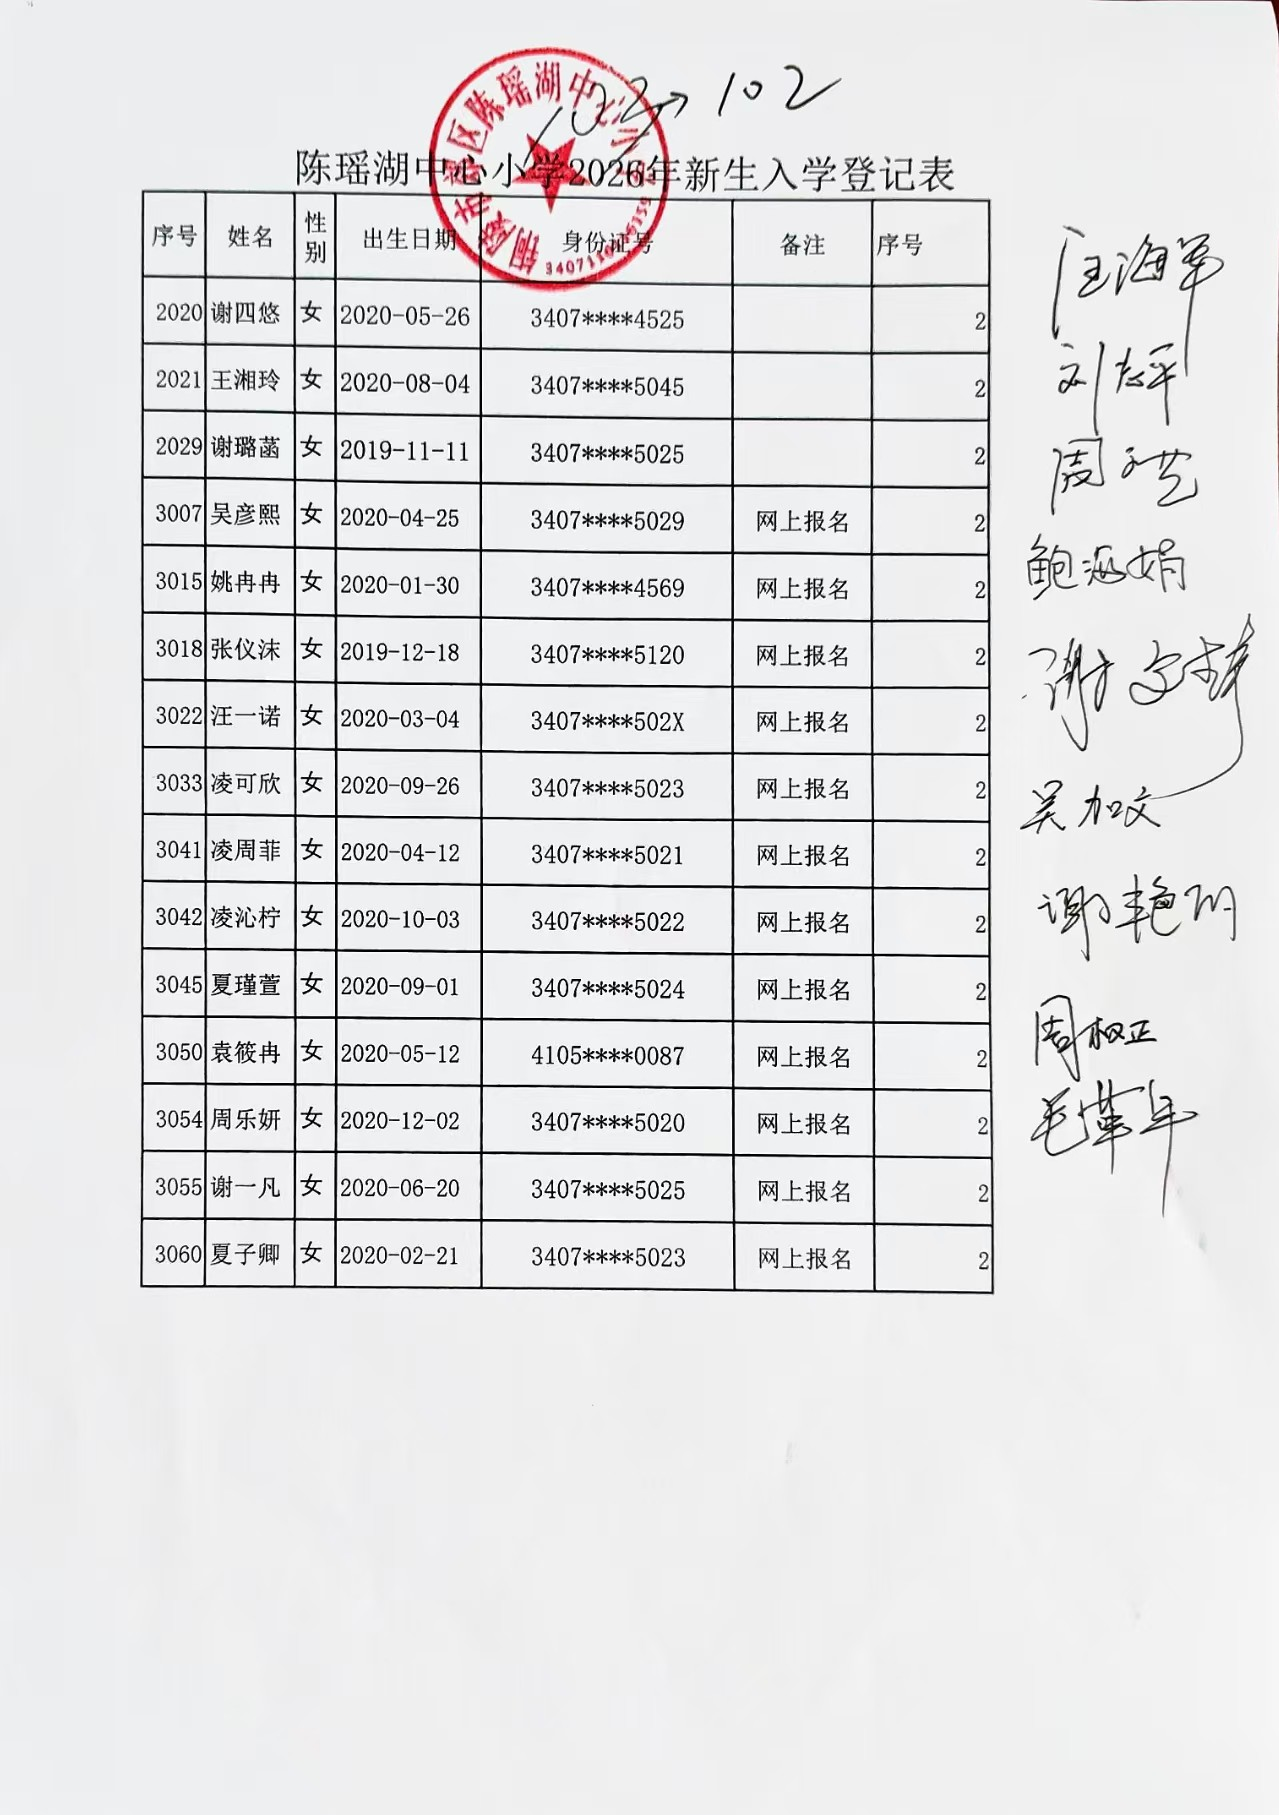 103→102
陈瑶湖中心小学2026年新生入学登记表
序号 姓名 性别 出生日期 身份证号 备注 序号
2020 谢四悠 女 2020-05-26 3407****4525 2
2021 王湘玲 女 2020-08-04 3407****5045 2
2029 谢璐菡 女 2019-11-11 3407****5025 2
3007 吴彦熙 女 2020-04-25 3407****5029 网上报名 2
3015 姚冉冉 女 2020-01-30 3407****4569 网上报名 2
3018 张仪沫 女 2019-12-18 3407****5120 网上报名 2
3022 汪一诺 女 2020-03-04 3407****502X 网上报名 2
3033 凌可欣 女 2020-09-26 3407****5023 网上报名 2
3041 凌周菲 女 2020-04-12 3407****5021 网上报名 2
3042 凌沁柠 女 2020-10-03 3407****5022 网上报名 2
3045 夏瑾萱 女 2020-09-01 3407****5024 网上报名 2
3050 袁筱冉 女 2020-05-12 4105****0087 网上报名 2
3054 周乐妍 女 2020-12-02 3407****5020 网上报名 2
3055 谢一凡 女 2020-06-20 3407****5025 网上报名 2
3060 夏子卿 女 2020-02-21 3407****5023 网上报名 2
汪海军
鲍海娟
吴加文
谢艳明
周权正